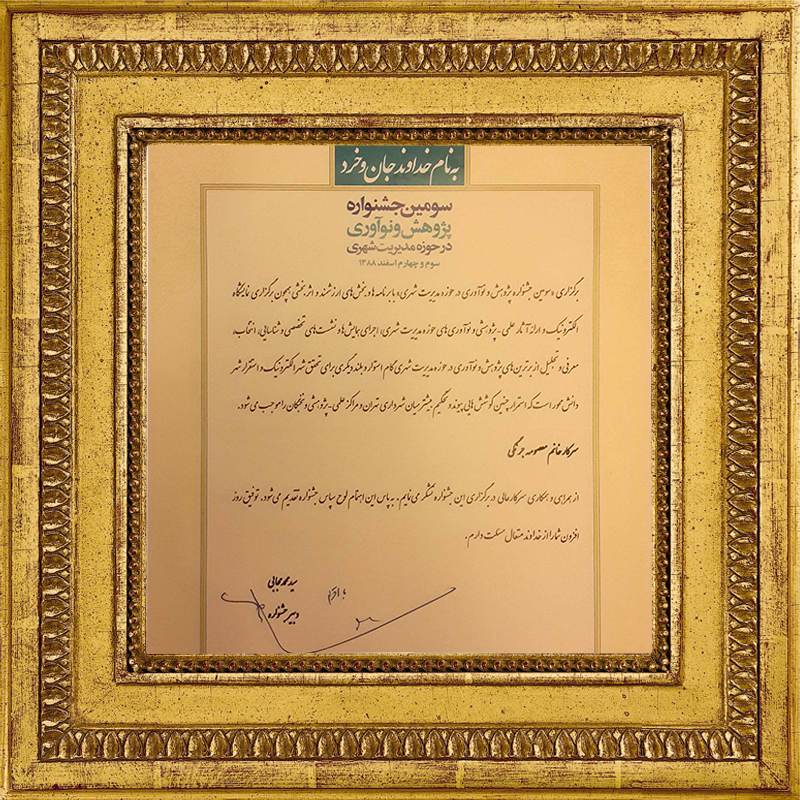 به نام خداوند جان و خرد
سومین جشنواره
پژوهش و نوآوری
در حوزه مدیریت شهری
سوم و چهارم اسفند ۱۳۸۸
برگزاری «سومین جشنواره پژوهش و نوآوری در حوزه مدیریت شهری» با برنامه‌ها و بخش‌های ارزشمند و اثربخشی همچون برگزاری نمایشگاه
الکترونیک و ارائه آثار علمی-پژوهشی و نوآوری‌های حوزه مدیریت شهری، اجرای همایش‌ها و نشست‌های تخصصی و شناسایی، انتخاب،
معرفی و تجلیل از برترین‌های پژوهش و نوآوری در حوزه مدیریت شهری گام استوار و بلند دیگری برای تحقق شهر الکترونیک و استقرار شهر
دانش محور است که استمرار چنین کوشش‌هایی پیوند و تحکیم بیشتر میان شهرداری تهران و مراکز علمی-پژوهشی و نخبگان را موجب می‌شود.
سرکار خانم معصومه
از همراهی و همکاری سرکارعالی در برگزاری این جشنواره تشکر می‌نمایم. به پاس این اهتمام لوح سپاس جشنواره تقدیم می‌شود. توفیق روز
افزون شما را از خداوند متعال مسئلت دارم.
سید محمد
با احترام
دبیر جشنواره